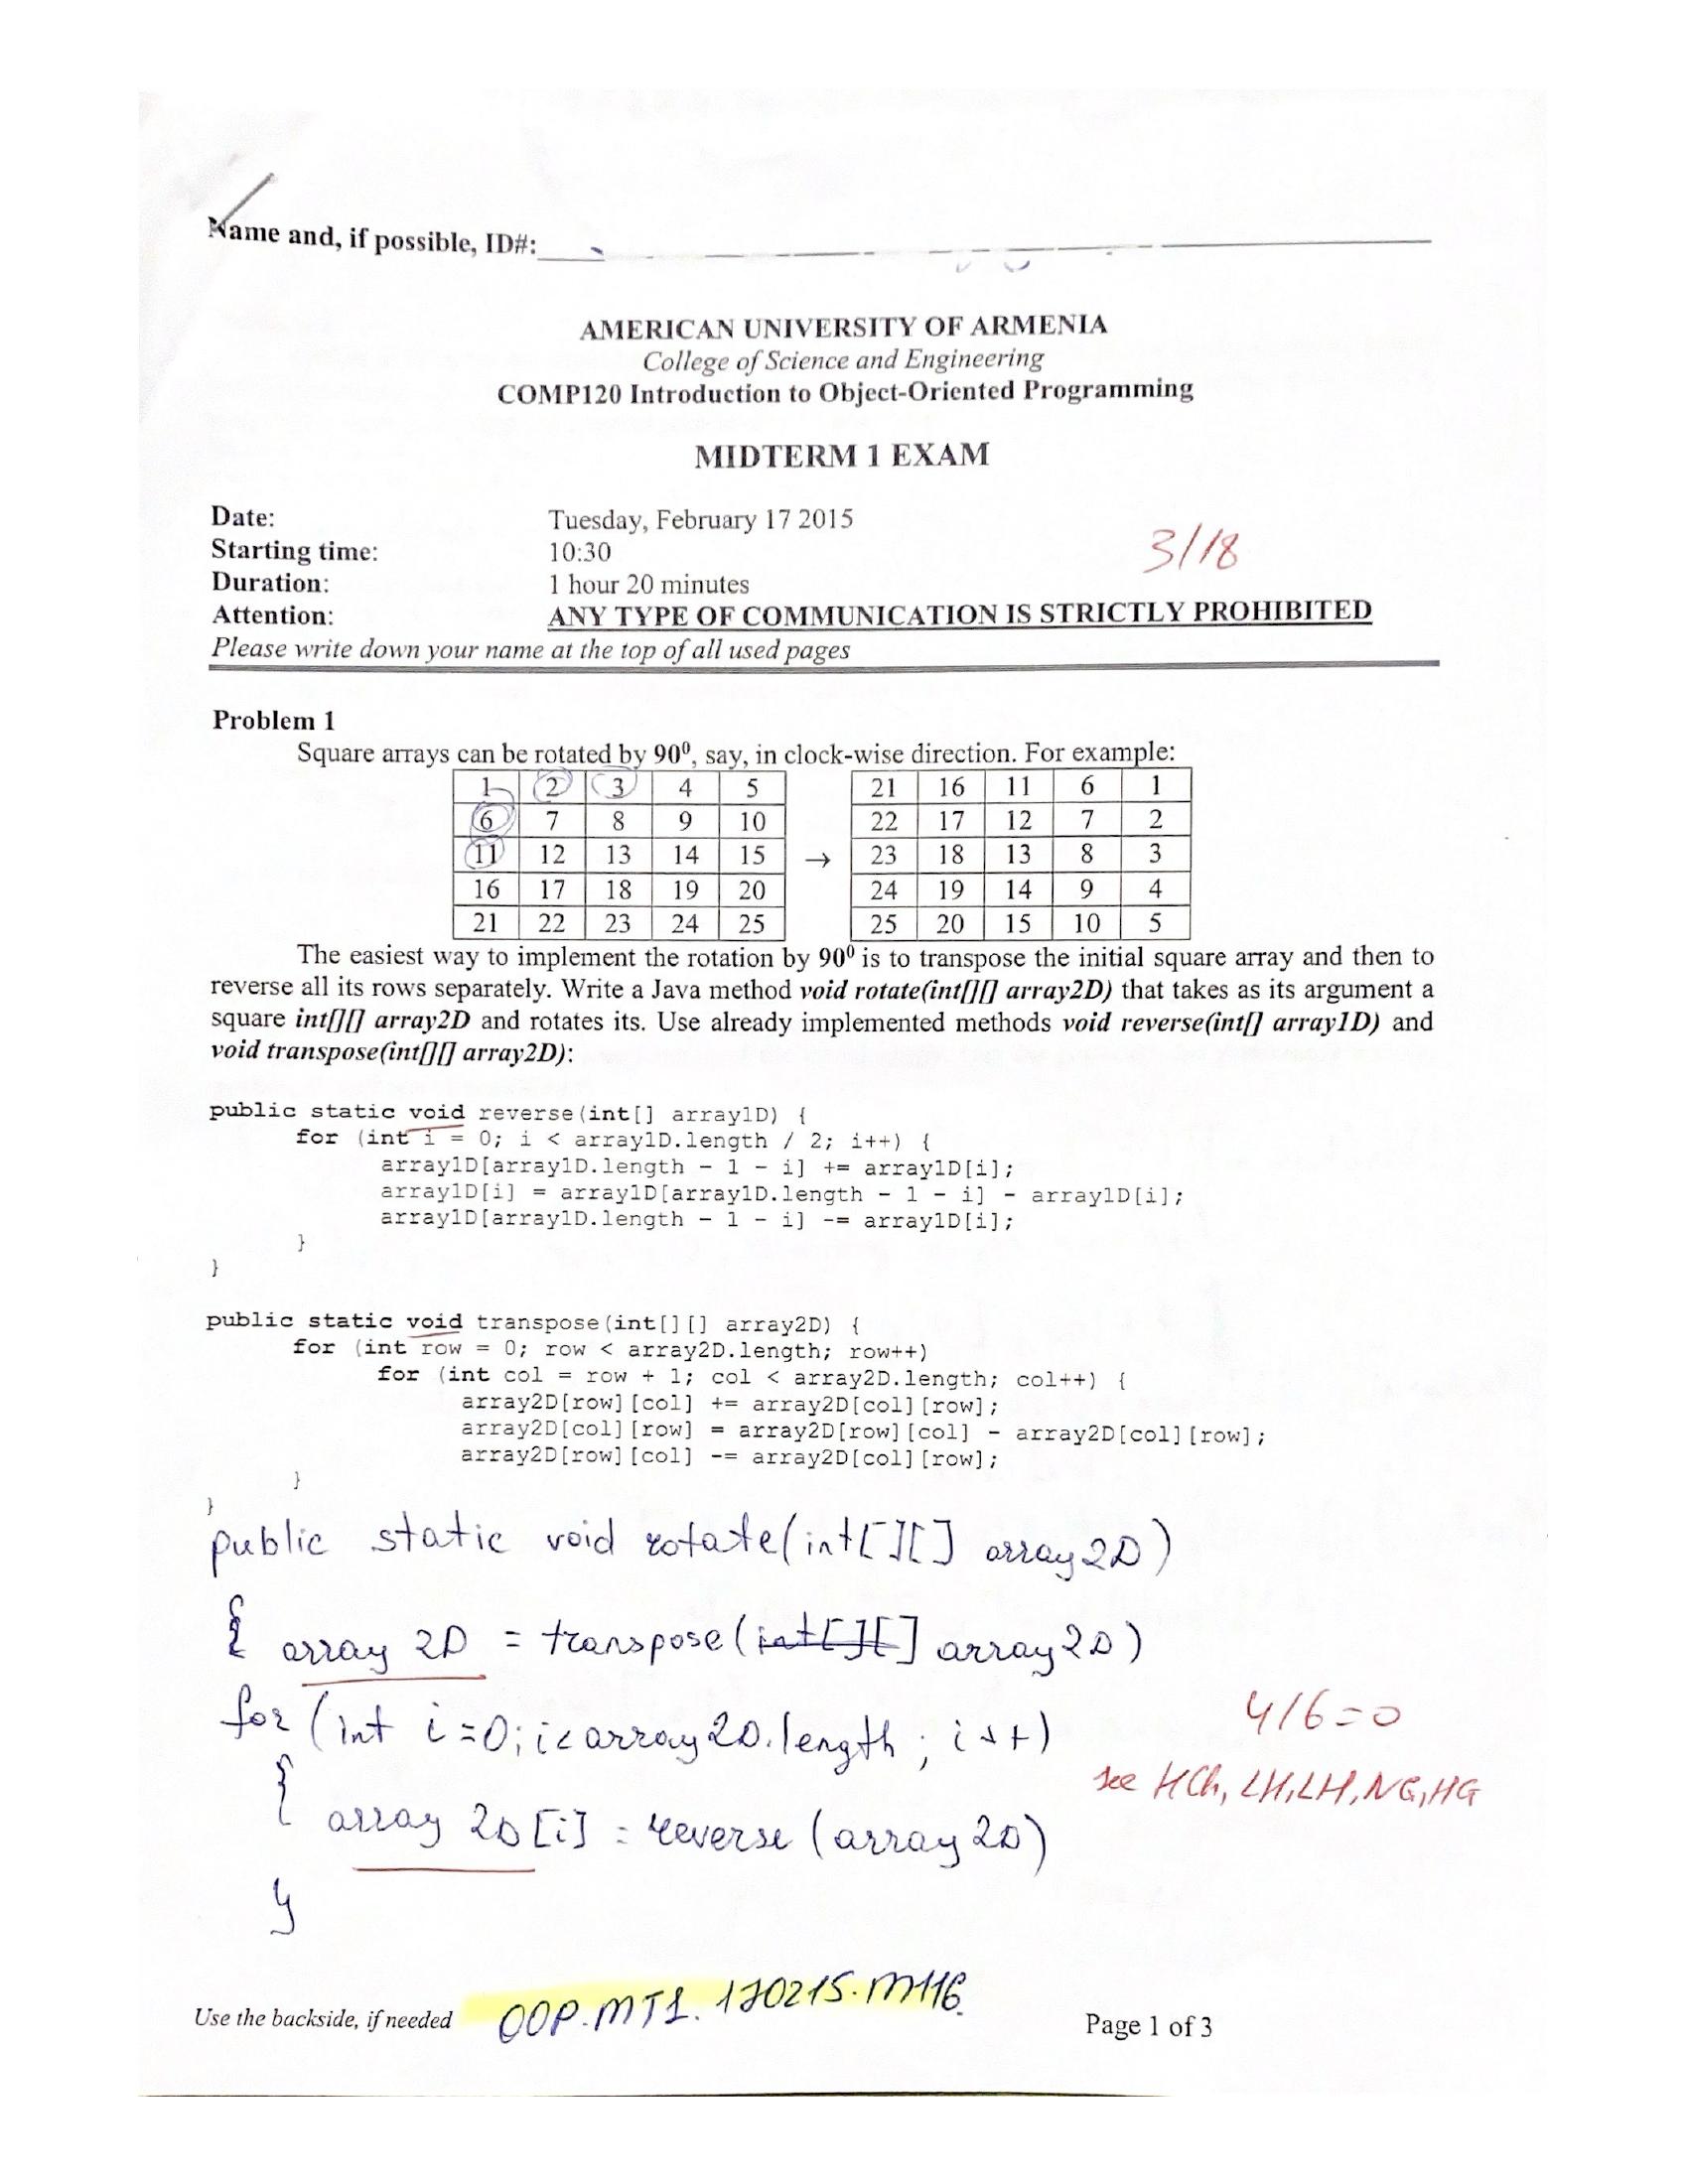 Name and, if possible, ID#:
AMERICAN UNIVERSITY OF ARMENIA
College of Science and Engineering
COMP120 Introduction to Object-Oriented Programming
MIDTERM 1 EXAM
Date: Tuesday, February 17 2015
3/18
Starting time: 10:30
Duration: 1 hour 20 minutes
Attention: ANY TYPE OF COMMUNICATION IS STRICTLY PROHIBITED
Please write down your name at the top of all used pages
Problem 1
Square arrays can be rotated by 90⁰, say, in clock-wise direction. For example:
1 2 3 4 5 21 16 11 6 1
6 7 8 9 10 22 17 12 7 2
11 12 13 14 15 → 23 18 13 8 3
16 17 18 19 20 24 19 14 9 4
21 22 23 24 25 25 20 15 10 5
The easiest way to implement the rotation by 90⁰ is to transpose the initial square array and then to
reverse all its rows separately. Write a Java method void rotate(int[][] array2D) that takes as its argument a
square int[][] array2D and rotates its. Use already implemented methods void reverse(int[] array1D) and
void transpose(int[][] array2D):
public static void reverse(int[] array1D) {
for (int i = 0; i < array1D.length / 2; i++) {
array1D[array1D.length - 1 - i] += array1D[i];
array1D[i] = array1D[array1D.length - 1 - i] - array1D[i];
array1D[array1D.length - 1 - i] -= array1D[i];
}
}
public static void transpose(int[][] array2D) {
for (int row = 0; row < array2D.length; row++)
for (int col = row + 1; col < array2D.length; col++) {
array2D[row][col] += array2D[col][row];
array2D[col][row] = array2D[row][col] - array2D[col][row];
array2D[row][col] -= array2D[col][row];
}
}
public static void rotate(int[][] array2D)
{ array 2D = transpose(int[][] array2D)
for (int i=0; i<array2D.length; i++)
4/6=0
see HCh, LH, LH, NG, HG
{ array 2D[i] = reverse (array2D)
}
Use the backside, if needed OOP.MT1.170215.M116 Page 1 of 3